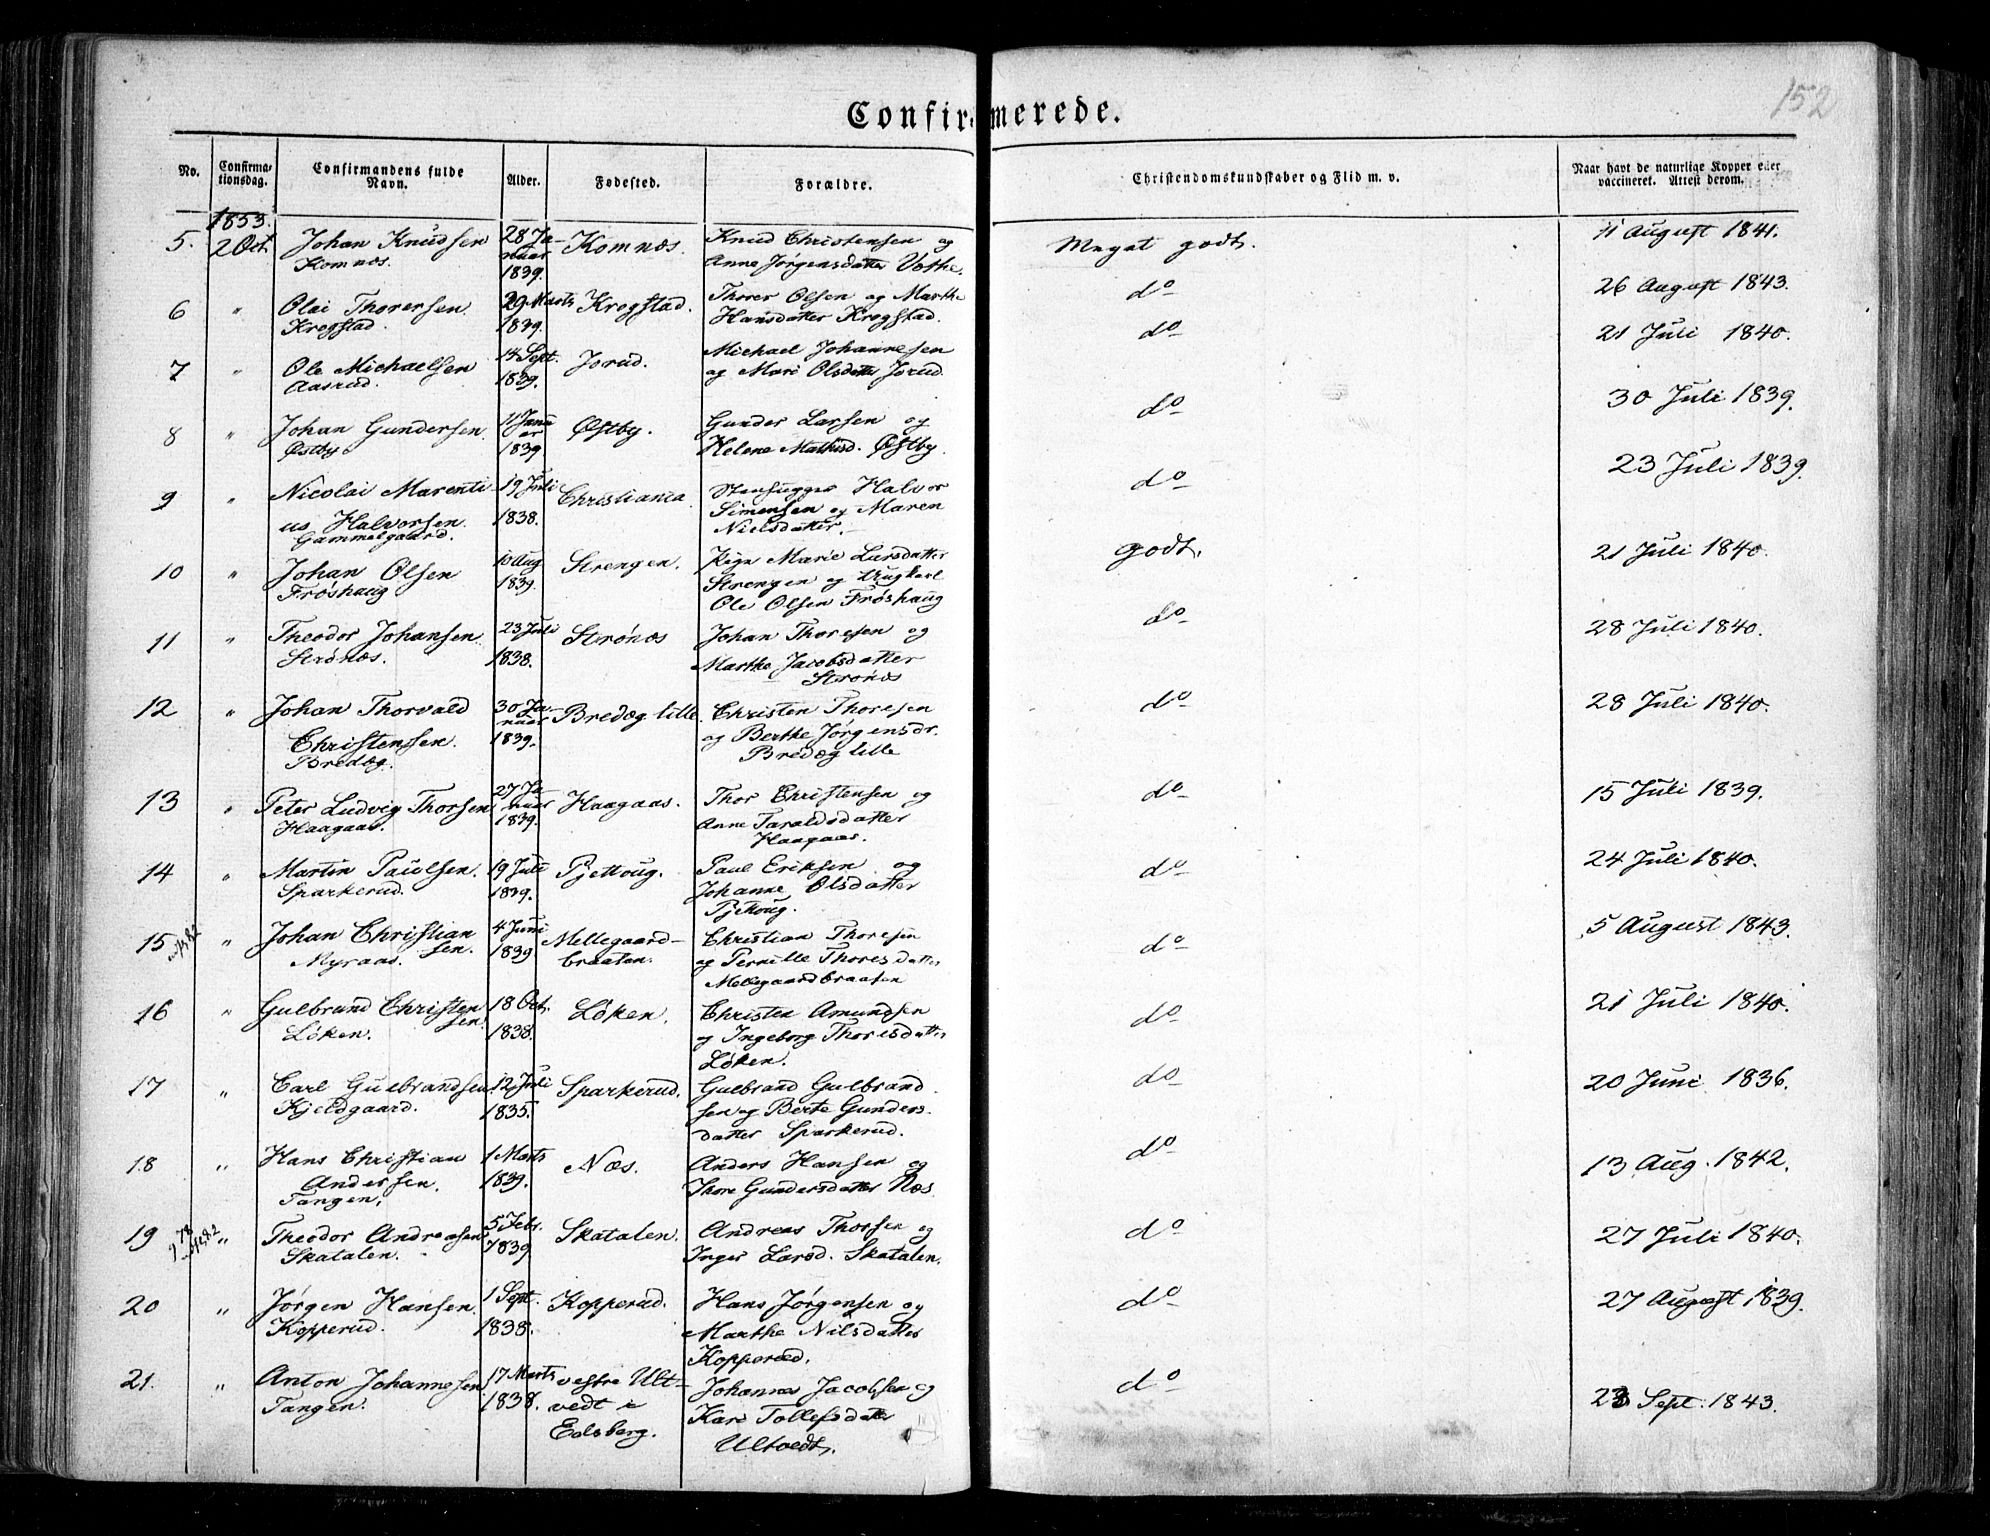 152
Confirmerede.
No. Confirmationsdag. Confirmandens fulde Navn. Alder. Fødested. Forældre. Christendomskundskaber og Flid m. v. Naar havt de naturlige Kopper eller vaccineret. Attest derom.
1853.
5. 2 Oct. Johan Knudsen 28 Ja- Komnæs. Knud Christensen og Meget godt. 11 August 1841.
Komnæs. nuar Anne Jørgensdatter
1839.
6 " Olai Thorersen 29 Marts Krogstad. Thorer Olsen og Marthe do 26 August 1843.
Krogstad. 1839. Hansdatter Krogstad.
7 " Ole Michaelsen 14 Sept. Jorud. Michael Johannesen do 21 Juli 1840.
Aasrud. 1839. og Mari Olsdatter Jorud
8 " Johan Gundersen 11 Janu Østby. Gunder Larsen og do 30 Juli 1839.
Østby. ar 1839 Helene Mathisd. Østby.
9 " Nicolai Marenti 19 Juli Christiania Stenhugger Halvor do 23 Juli 1839.
us Halvorsen 1838. Simensen og Maren
Gammelgaard. Nielsdatter.
10 " Johan Olsen 10 Aug Strengen. Pige Marie Larsdatter godt. 21 Juli 1840.
Frøshaug 1839. Strengen og Ungkarl
Ole Olsen Frøshaug
11 " Theodor Johansen 23 Juli Strønæs Johan Thoresen og do 28 Juli 1840.
Strønæs. 1838. Marthe Jacobsdatter
Strønæs
12 " Johan Thorvald 30 Ja- Bredæg lille. Christen Thoresen do 28 Juli 1840.
Christenssen. nuar 1839. og Berthe Jørgensdr.
Bredæg. Bredæg lille
13 " Peter Ludvig Thorsen 27 Ja Haagaas. Thor Christensen og do 15 Juli 1839.
Haagaas. nuar 1839. Anne Taraldsdatter
Haagaas.
14 " Martin Paulsen. 19 Juli Pjettoug. Paul Eriksen og do 24 Juli 1840.
Sparkerud. 1839. Johanne Olsdatter
Pjettoug.
15 " Johan Christian 4 Juni Mellegaard- Christian Thoresen do 5 August 1843.
sen. Myraas. 1839 braaten. og Pernille Thoresdatter
Mellegaardbraaten
16 " Gulbrand Christen 18 Oct. Løken. Christen Amundsen do 21 Juli 1840.
sen. Løken. 1838. og Ingeborg Thoresdatter
Løken.
17 " Carl Gulbrandsen 12 Juli Sparkerud. Gulbrand Gulbrand do 20 Juni 1836.
Kjeldgaard. 1835. sen og Berte Gunders
datter Sparkerud.
18 " Hans Christian 1 Marts Næs. Anders Hansen og do 13 Aug. 1842.
Andersen. 1839. Thore Gundersdatter Næs
Tangen.
19 " Theodor Andreasen 5 Febr. Skatalen. Andreas Thorsen og do 27 Juli 1840.
Skatalen. 1839. Inger Larsd. Skatalen.
20 " Jørgen Hansen. 1 Sept. Kopperud. Hans Jørgensen og do 27 August 1839.
Kopperud. 1838. Marthe Nilsdatter
Kopperud.
21. " Anton Johannesen 17 Marts vestre Ult- Johannes Jacobsen og do 23 Sept. 1843.
Tangen. 1838. vedt i Kari Tollefsdatter
Edsberg. Ultvedt.